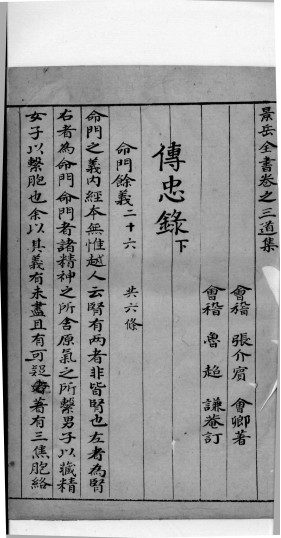 景岳全書卷之三道集
會稽 張介賓 會卿著
會稽 魯超 謙菴訂
傳忠錄下
命門餘義二十六 共六條
命門之義內經本無惟越人云腎有两者非皆腎也左者為腎
右者為命門命門者諸精神之所舍原氣之所繫男子以藏精
女子以繫胞也余以其義有未盡且有可疑者著有三焦胞絡